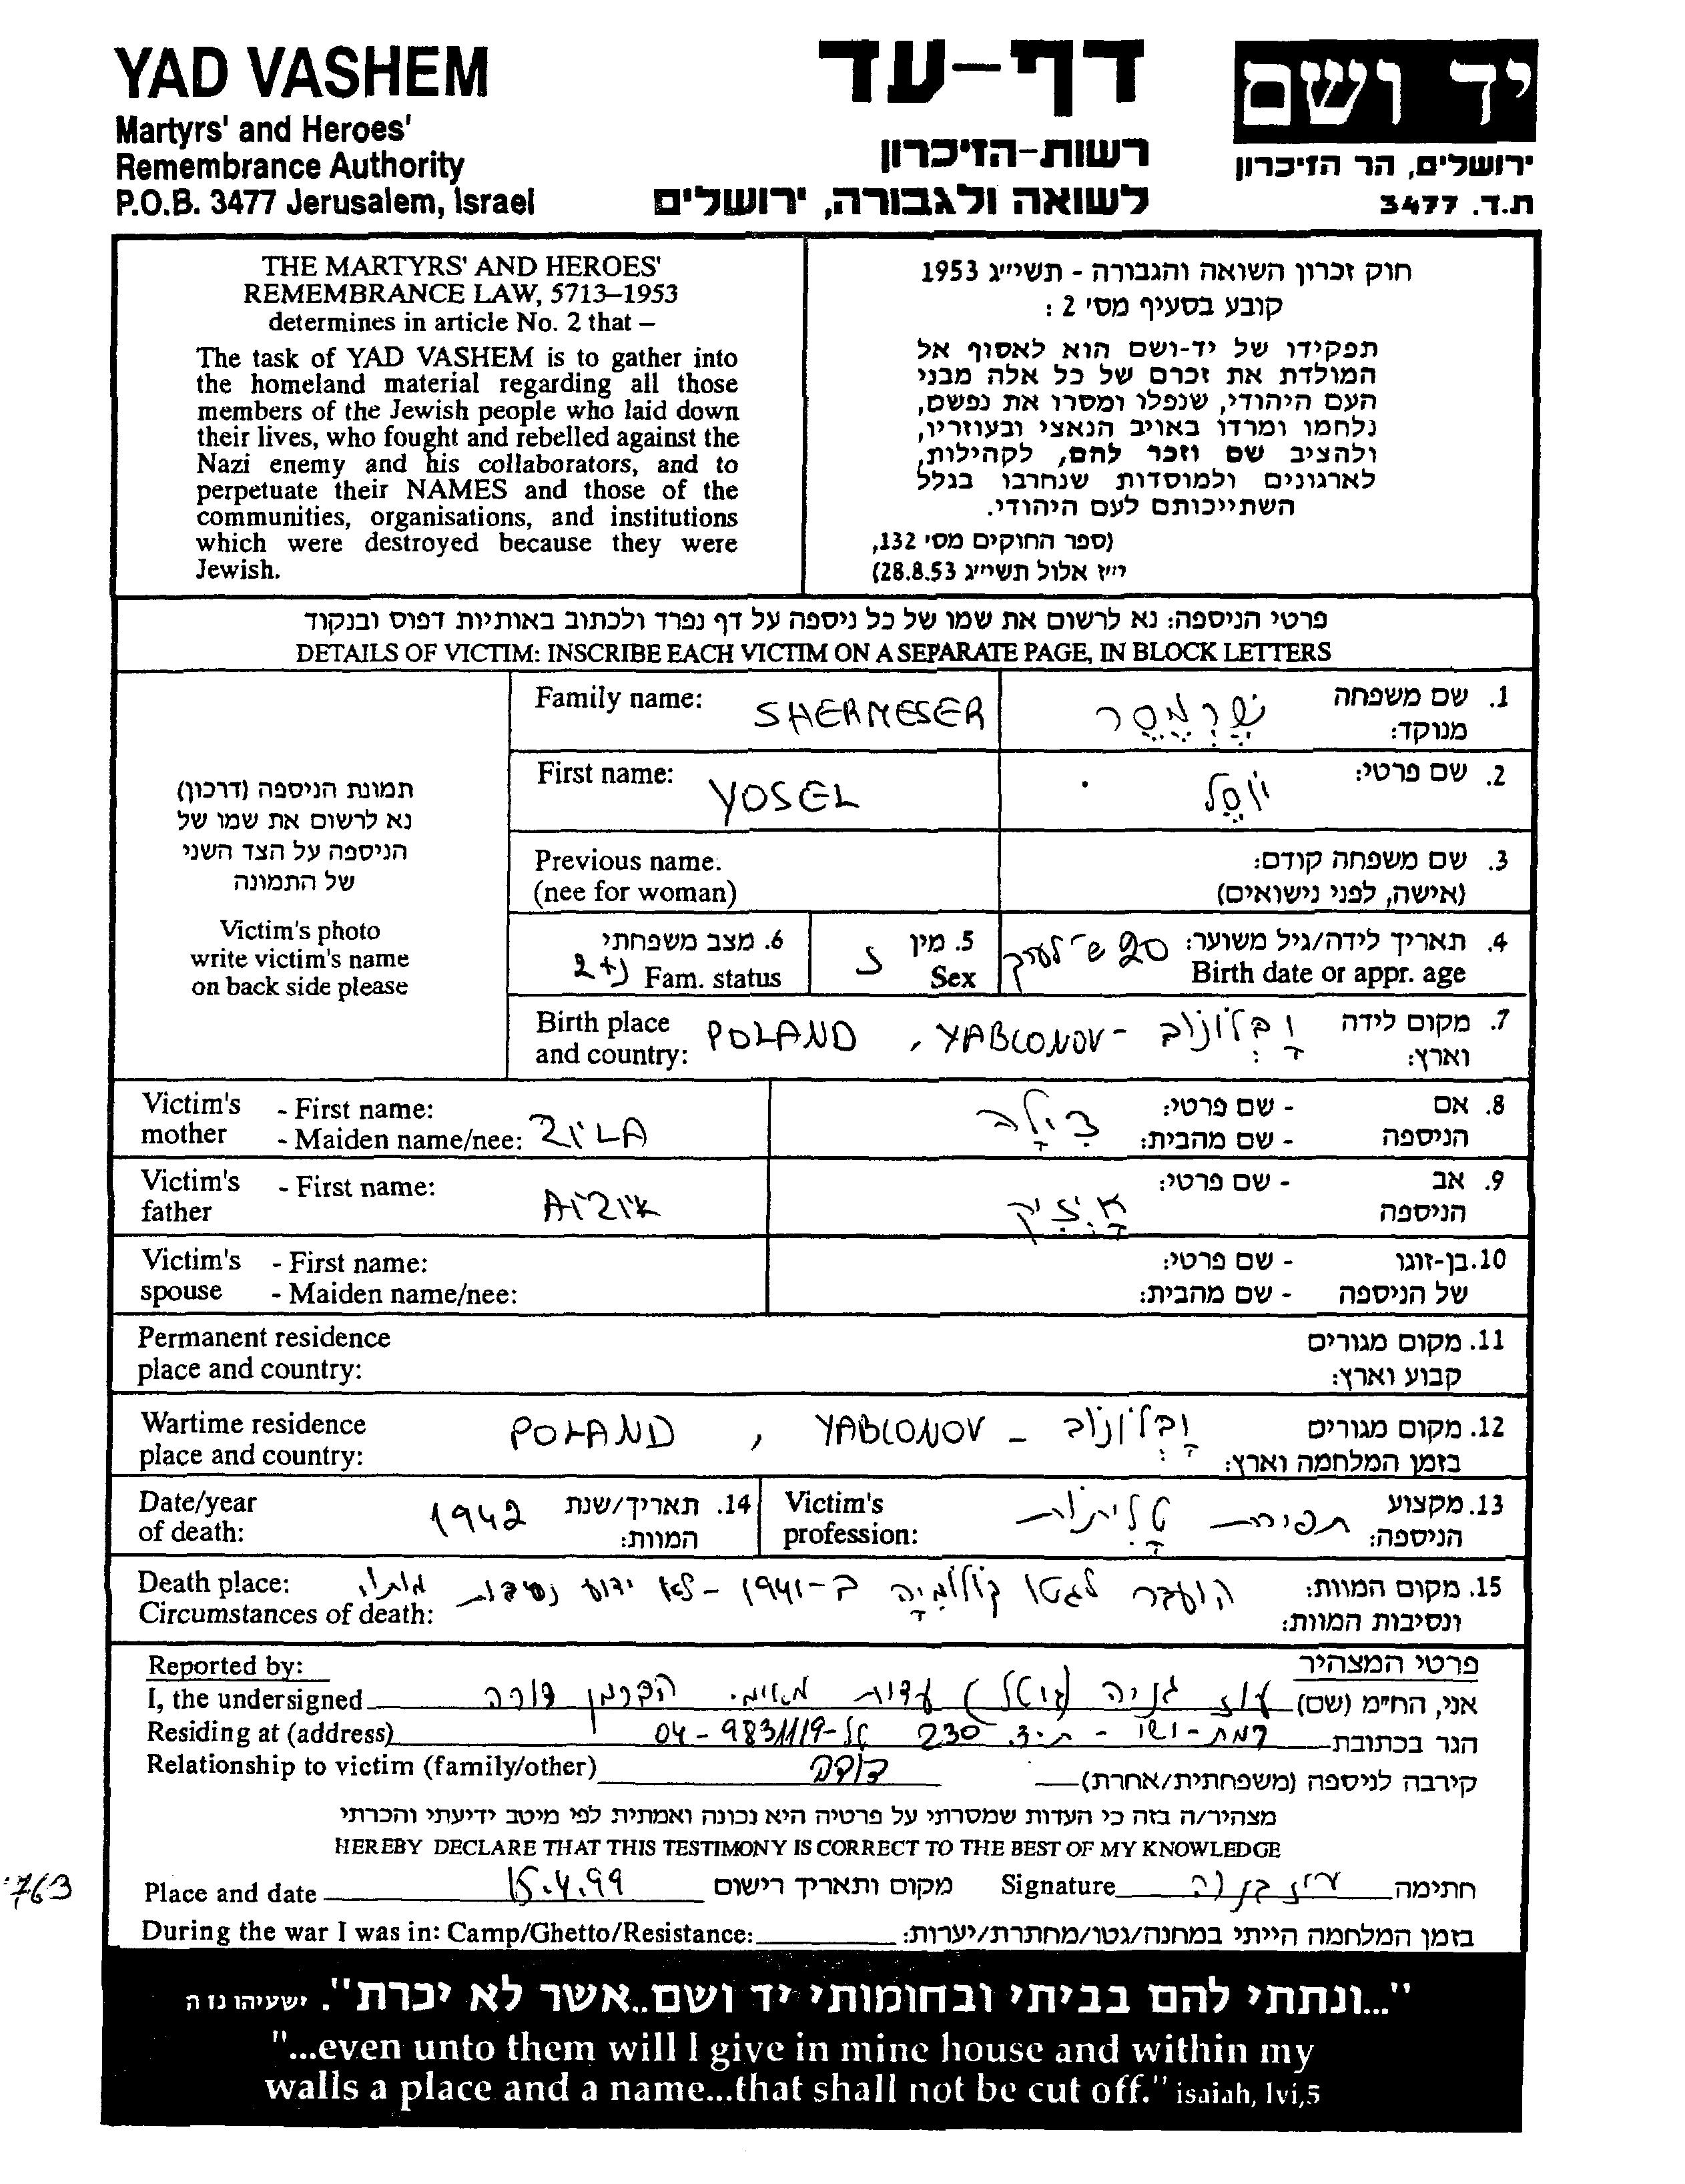 YAD VASHEM
Martyrs' and Heroes'
Remembrance Authority
P.O.B. 3477 Jerusalem, Israel
דף-עד
רשות-הזיכרון
לשואה ולגבורה, ירושלים
יד ושם
ירושלים, הר הזיכרון
ת.ד. 3477
THE MARTYRS' AND HEROES'
REMEMBRANCE LAW, 5713–1953
determines in article No. 2 that –
The task of YAD VASHEM is to gather into
the homeland material regarding all those
members of the Jewish people who laid down
their lives, who fought and rebelled against the
Nazi enemy and his collaborators, and to
perpetuate their NAMES and those of the
communities, organisations, and institutions
which were destroyed because they were
Jewish.
חוק זכרון השואה והגבורה - תשי״ג 1953
קובע בסעיף מס׳ 2 :
תפקידו של יד-ושם הוא לאסוף אל
המולדת את זכרם של כל אלה מבני
העם היהודי, שנפלו ומסרו את נפשם,
נלחמו ומרדו באויב הנאצי ובעוזריו,
ולהציב שם וזכר להם, לקהילות,
לארגונים ולמוסדות שנחרבו בגלל
השתייכותם לעם היהודי.
(ספר החוקים מס׳ 132,
י״ז אלול תשי״ג 28.8.53)
פרטי הניספה: נא לרשום את שמו של כל ניספה על דף נפרד ולכתוב באותיות דפוס ובנקוד
DETAILS OF VICTIM: INSCRIBE EACH VICTIM ON A SEPARATE PAGE, IN BLOCK LETTERS
תמונת הניספה (דרכון)
נא לרשום את שמו של
הניספה על הצד השני
של התמונה
Victim's photo
write victim's name
on back side please
Family name: SHERMESER שרמסר 1. שם משפחה
מנוקד:
First name: YOSEL יוסל 2. שם פרטי:
Previous name.
(nee for woman)
3. שם משפחה קודם:
(אישה, לפני נישואים)
4. תאריך לידה/גיל משוער: 20 ש׳ לערך
Birth date or appr. age
5. מין ז
Sex
6. מצב משפחתי
Fam. status נ+2
Birth place
and country: POLAND , YABLONOV - יבלונוב 7. מקום לידה
וארץ:
Victim's - First name: - שם פרטי: 8. אם
mother - Maiden name/nee: ZILA צילה - שם מהבית: הניספה
Victim's - First name: - שם פרטי: 9. אב
father AIZIK אייזיק הניספה
Victim's - First name: - שם פרטי: 10. בן-זוגו
spouse - Maiden name/nee: - שם מהבית: של הניספה
Permanent residence 11. מקום מגורים
place and country: קבוע וארץ:
Wartime residence POLAND , YABLONOV - יבלונוב 12. מקום מגורים
place and country: בזמן המלחמה וארץ:
Date/year
of death: 1942 14. תאריך/שנת
המוות:
Victim's
profession: תפירת טליתות 13. מקצוע
הניספה:
Death place: הועבר לגטו קולומיה ב-1941 - לא ידוע נסיבות מותו. 15. מקום המוות:
Circumstances of death: ונסיבות המוות:
Reported by: פרטי המצהיר
I, the undersigned עוז גניה עדות מאימי. דורה אני, הח״מ (שם)
Residing at (address) רמת-ישי - ת.ד. 230 טל-04-9831119 הגר בכתובת
Relationship to victim (family/other) דודה קירבה לניספה (משפחתית/אחרת)
מצהיר/ה בזה כי העדות שמסרתי על פרטיה היא נכונה ואמתית לפי מיטב ידיעתי והכרתי
HEREBY DECLARE THAT THIS TESTIMONY IS CORRECT TO THE BEST OF MY KNOWLEDGE
Place and date 15.4.99 מקום ותאריך רישום Signature עוז גניה חתימה
763
During the war I was in: Camp/Ghetto/Resistance: בזמן המלחמה הייתי במחנה/גטו/מחתרת/יערות:
"...ונתתי להם בביתי ובחומותי יד ושם..אשר לא יכרת". ישעיהו נו ה
"...even unto them will I give in mine house and within my
walls a place and a name...that shall not be cut off." isaiah, lvi,5